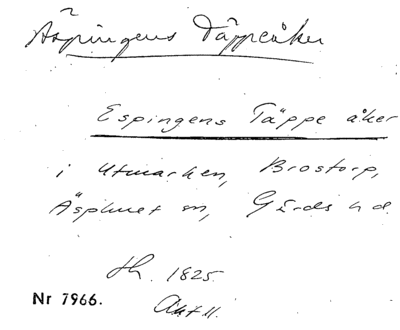 Äspingens Täppeåker
Espingens Täppe åker
i Utmarken, Brostorp,
Äsphult sn, Gärds hd.
lh. 1825.
Akt 11.
Nr 7966.